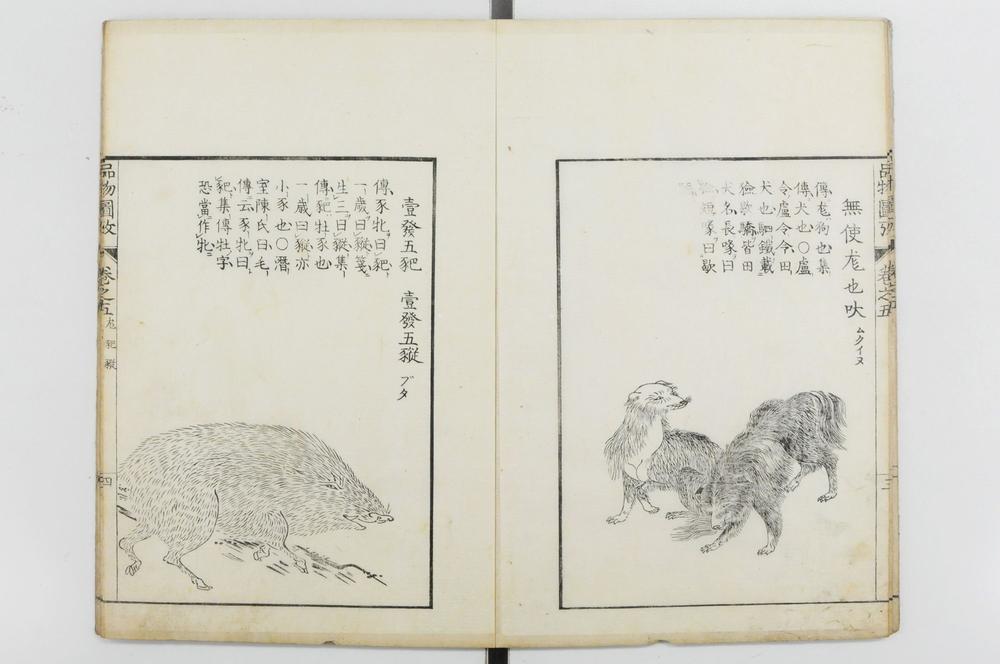 無使尨也吠
ムクイヌ
傳尨狗也集
傳犬也〇盧
令盧令令田
犬也駟鐵載
獫歇驕皆田
犬名長喙曰
獫短喙曰歇
品物圖攷
卷之五
三
壹發五豝
壹發五豵
ブタ
傳豕牝曰豝
一歲曰豵箋
生三曰豵集
傳豝牡豕也
一歲曰豵亦
小豕也〇潛
室陳氏曰毛
傳云豕牝曰
豝集傳牡字
恐當作牝
品物圖攷
卷之五
尨豝豵
四